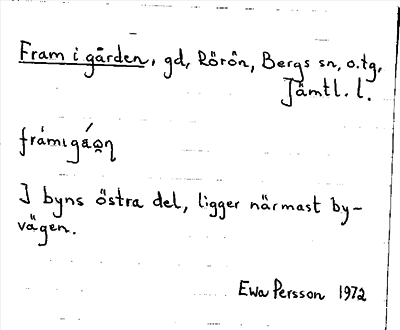 Fram i gården, gd, Rörön, Bergs sn, o.tg,
Jämtl. l.
I byns östra del, ligger närmast by-
vägen.
Ewa Persson 1972